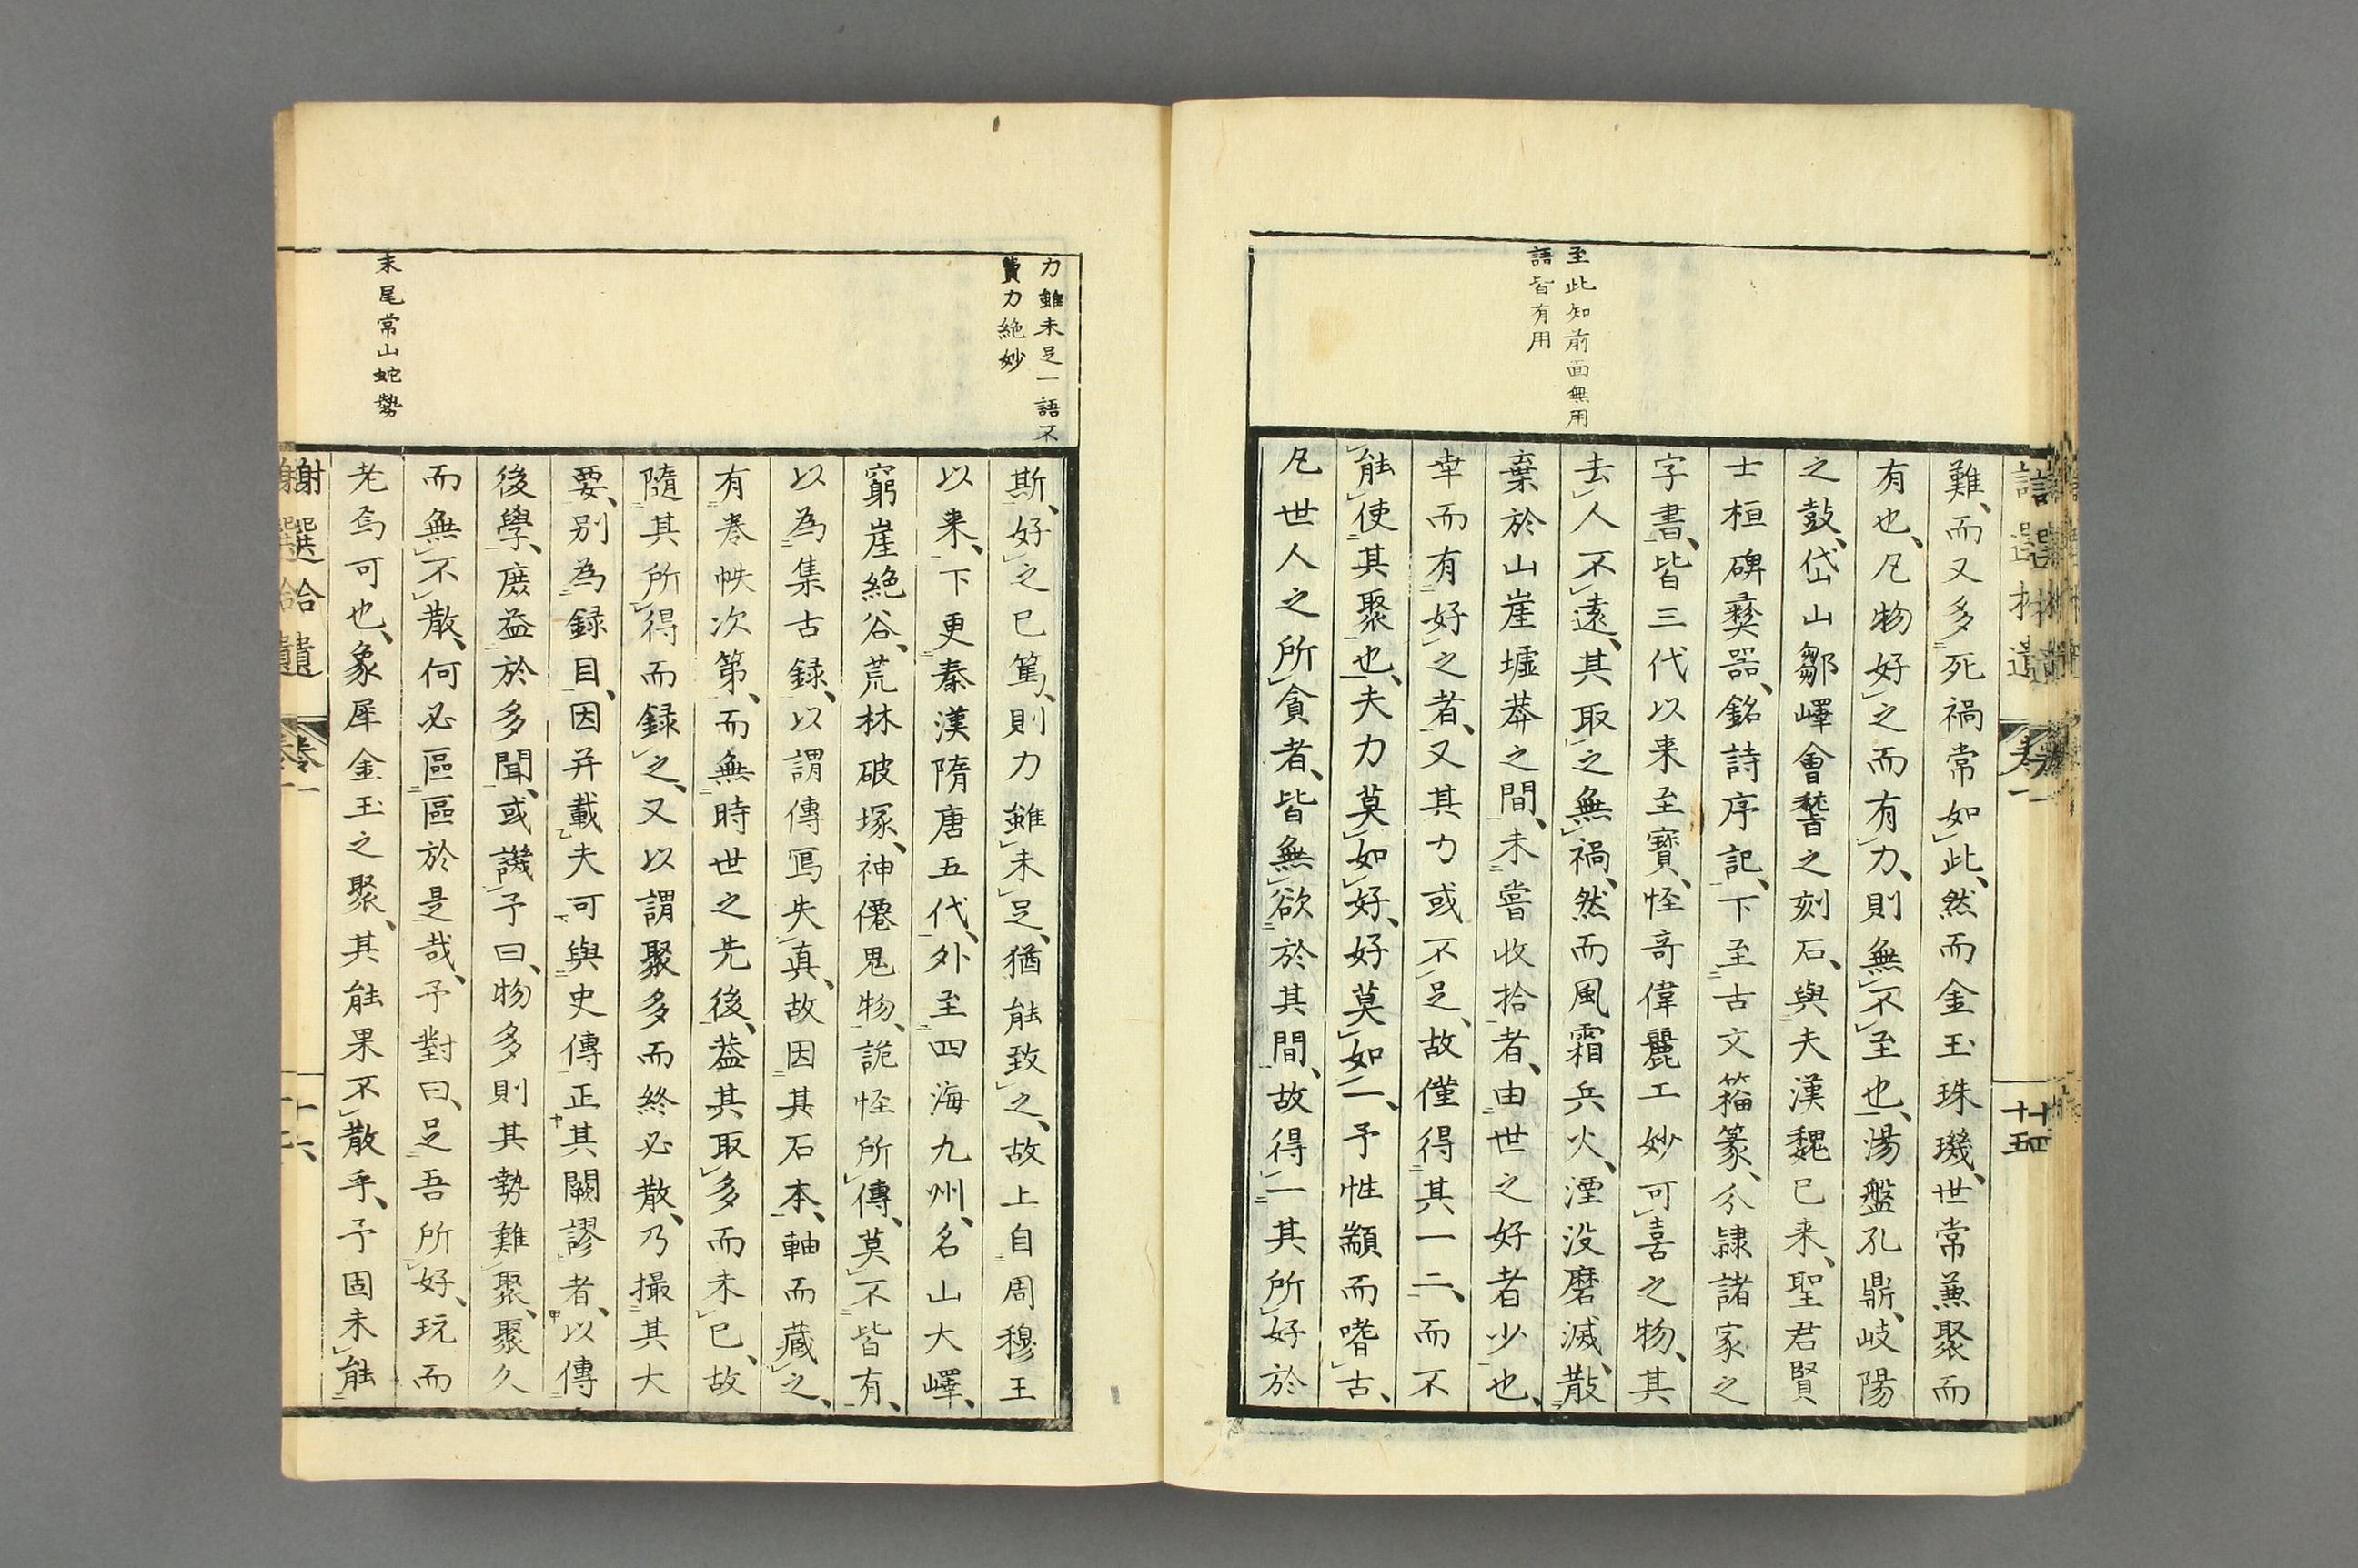 至此知前面無用
語皆有用
難、而又多死禍常如此、然而金玉珠璣、世常兼聚而
有也、凡物好之而有力、則無不至也、湯盤孔鼎、岐陽
之鼓、岱山鄒嶧會稽之刻石、與夫漢魏已来、聖君賢
士桓碑彝器、銘詩序記、下至古文籀篆、分隷諸家之
字書、皆三代以来至寶、怪奇偉麗工妙可喜之物、其
去人不遠、其取之無禍、然而風霜兵火、湮没磨滅、散
棄於山崖墟莽之間、未嘗收拾者、由世之好者少也、
幸而有好之者、又其力或不足、故僅得其一二、而不
能使其聚也、夫力莫如好、好莫如一、予性顓而嗜古、
凡世人之所貪者、皆無欲於其間、故得一其所好於
力雖未足一語不
費力絶妙
末尾常山蛇勢
斯、好之已篤、則力雖未足、猶能致之、故上自周穆王
以来、下更秦漢隋唐五代、外至四海九州、名山大嶧、
窮崖絶谷、荒林破塚、神僊鬼物、詭怪所傳、莫不皆有、
以為集古録、以謂傳冩失真、故因其石本、軸而藏之、
有巻帙次第、而無時世之先後、葢其取多而未已、故
隨其所得而録之、又以謂聚多而終必散、乃撮其大
要、别為録目、因并載夫可與史傳正其闕謬者、以傳
後學、庶益於多聞、或譏予曰、物多則其勢難聚、聚久
而無不散、何必區區於是哉、予對曰、足吾所好、玩而
老焉可也、象犀金玉之聚、其能果不散乎、予固未能
謝選拾遺 巻一 十六